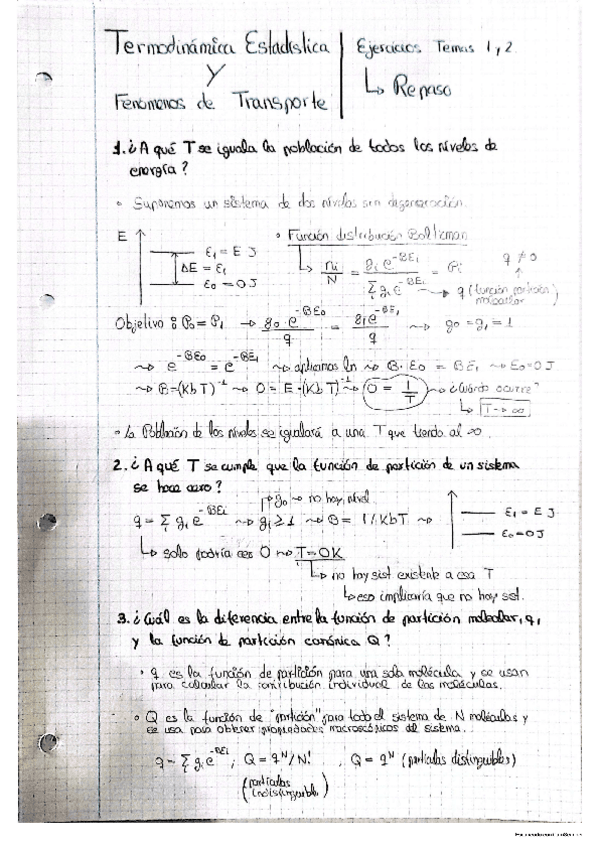 Termodinámica Estadística | Ejercicios Temas 1 y 2.
Y
Fenómenos de Transporte | ↳ Repaso
1. ¿A qué T se iguala la población de todos los niveles de
energía?
• Suponemos un sistema de dos niveles sin degeneración.
E ↑ • Función distribución Boltzman
ε₁ = E J
ΔE = ε₁
ε₀ = 0 J
↳ ni/N = gi e^-βEi / Σ gi e^-βEi = Pi
q ≠ 0
q (función partición molecular)
Objetivo: P₀ = P₁ → g₀ e^-βE₀ / q = g₁ e^-βE₁ / q ⇝ g₀ = g₁ = 1
⇝ e^-βE₀ = e^-βE₁ ⇝ aplicamos ln ⇝ β · E₀ = βE₁ ⇝ E₀ = 0 J
⇝ β = (Kb T)^-1 ⇝ 0 = E · (Kb T)^-1 ⇝ 0 = 1/T ⇝ ¿Cuándo ocurre?
↳ T → ∞
• La Población de los niveles se igualará a una T que tienda al ∞.
2. ¿A qué T se cumple que la función de partición de un sistema
se hace cero?
g₀ ⇝ no hay nivel
q = Σ gi e^-βEi ⇝ gi ≥ 1 ⇝ β = 1/KbT ⇝
ε₁ = E J
ε₀ = 0 J
↳ solo podría ser 0 ⇝ T = 0K
↳ no hay sist existente a esa T
↳ eso implicaría que no hay sist.
3. ¿Cuál es la diferencia entre la función de partición molecular, q,
y la función de partición canónica Q?
• q es la función de partición para una sola molécula y se usan
para calcular la contribución individual de las moléculas.
• Q es la función de "partición" para todo el sistema de N moléculas y
se usa para obtener propiedades macroscópicas del sistema.
q = Σ gi e^-βEi ; Q = q^N/N! , Q = q^N (partículas distinguibles)
(partículas
indistinguibles)